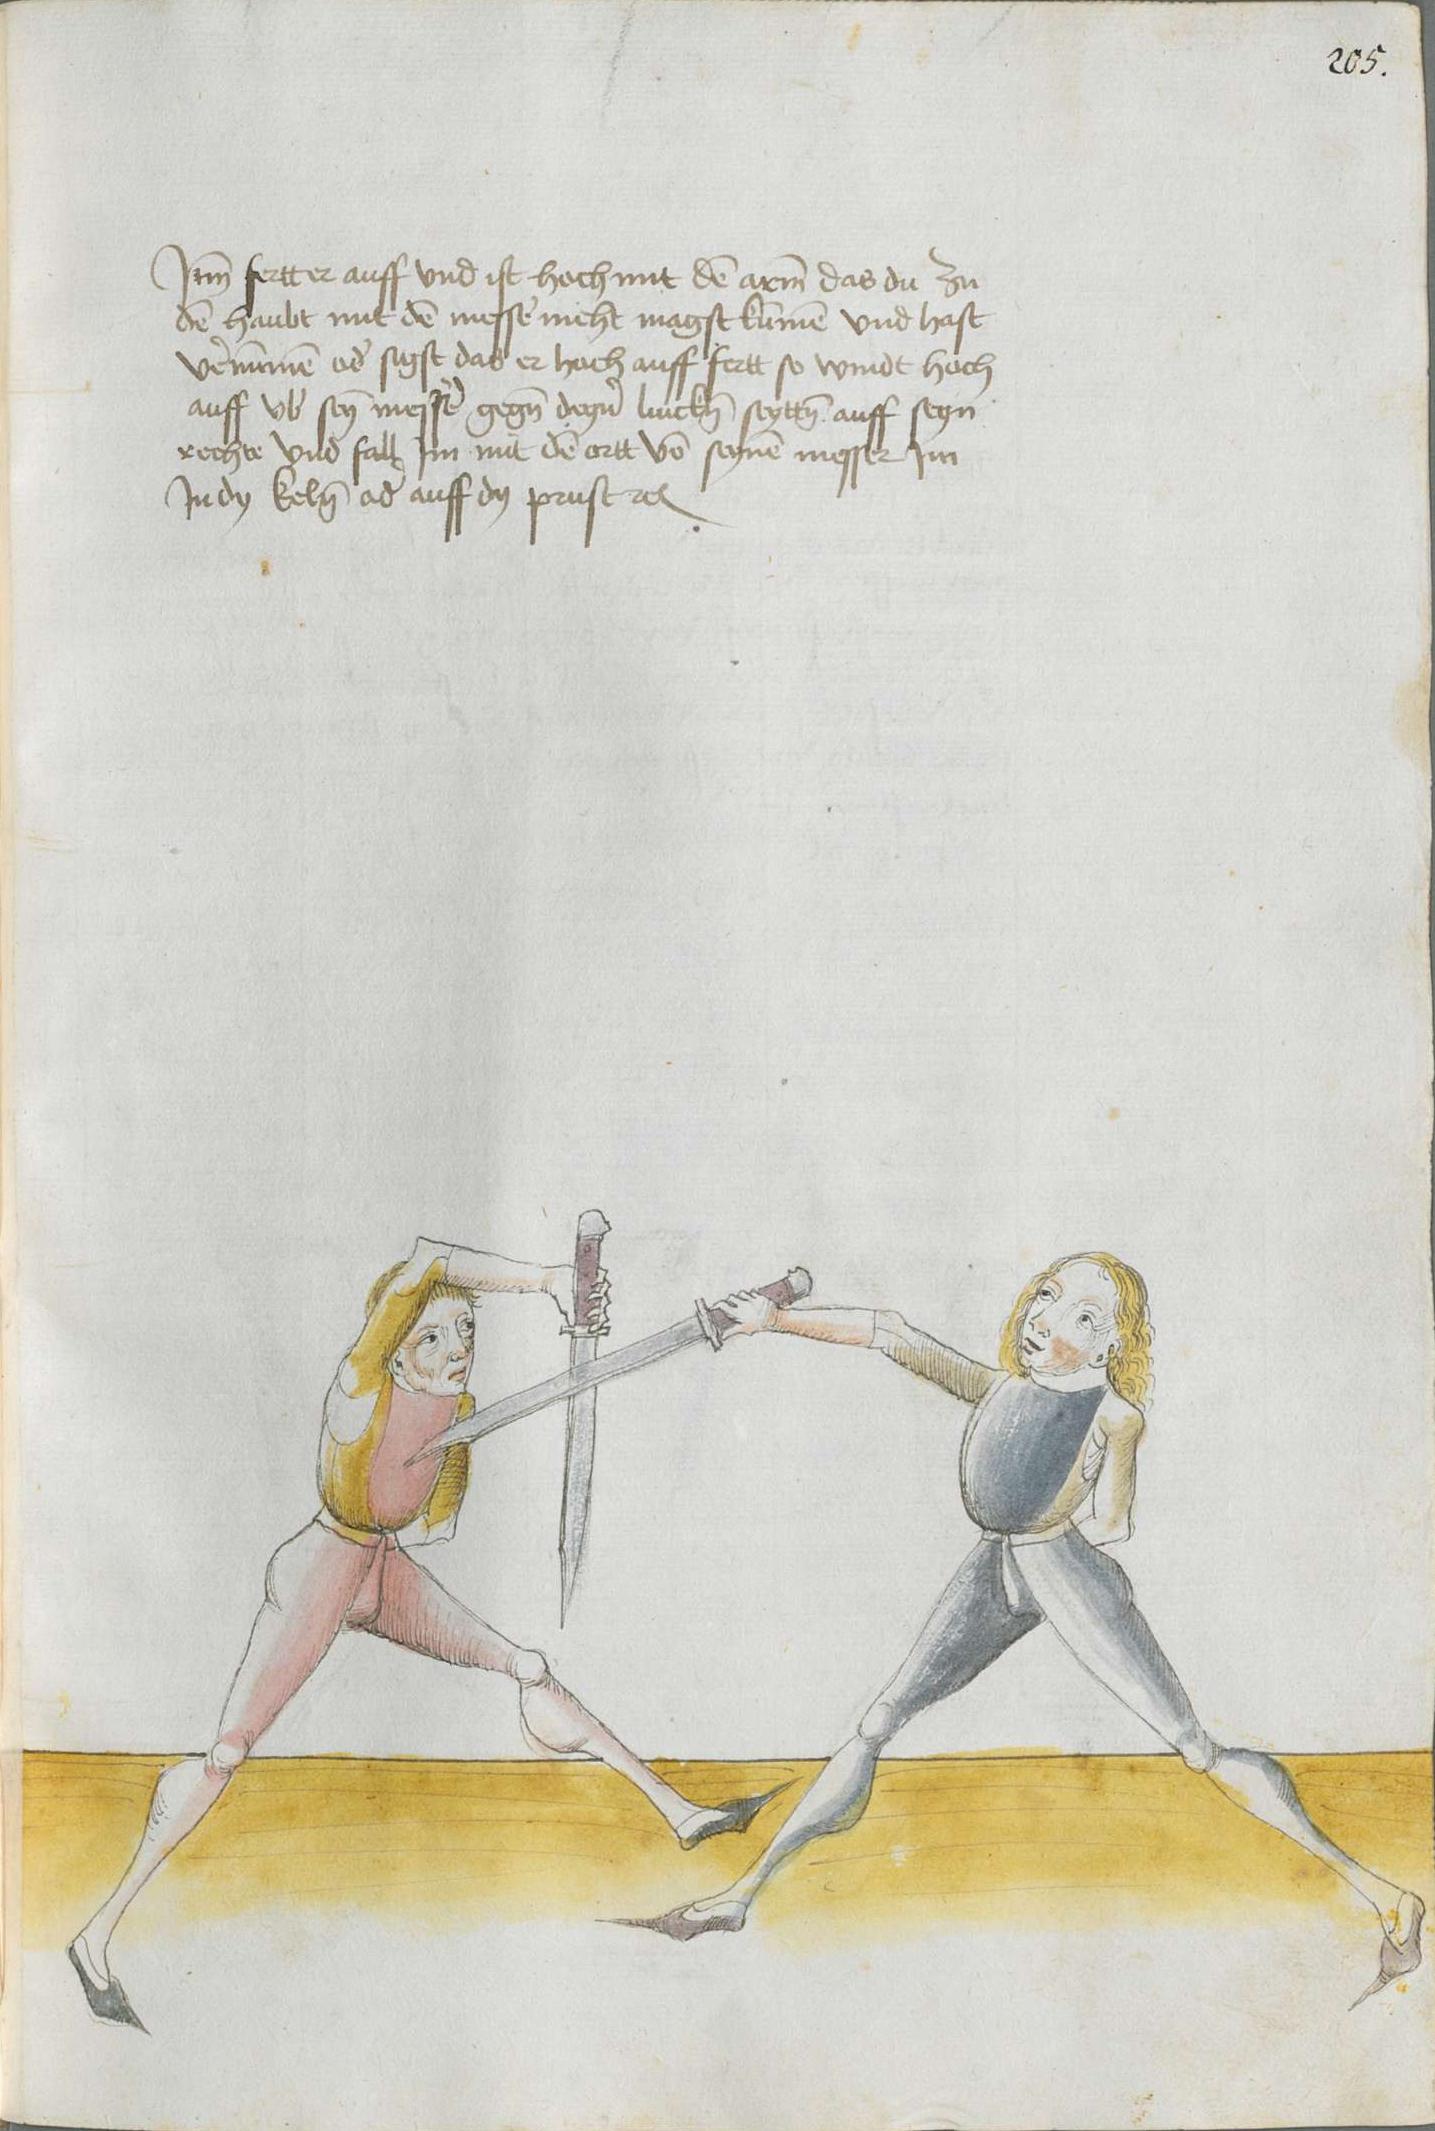 205.
Jtm̄ fertt er auff vnd ist hoch mit dē arm̄ das du zu
dē haubt mit dē messe᷑ nicht magst kumē vnd hast
ve᷑numē od᷑ sigst das er hoch auff fertt so windt hoch
auff vb᷑ sey̅ messe᷑ gegn̄ linckn̄ seyttn̄ auff seyn
rechte vnd fall Jm mit dē ortt vō seynē messer Jm
Jn dy keln̄ od᷑ auff dy prust